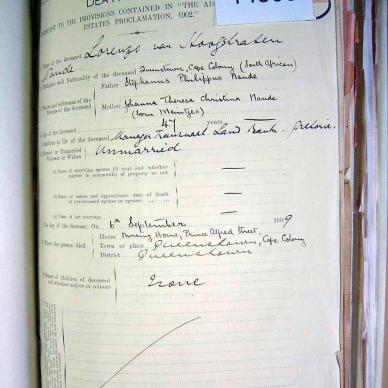 DEAT
PURSUANT TO THE PROVISIONS CONTAINED IN "THE AD
ESTATES PROCLAMATION, 1902."
Name of the deceased Lorenzo van Hooghraten
Naude
and Nationality of the deceased Queenstown, Cape Colony (South African)
Names and addresses of the
Parents of the deceased
Father Stephanus Philippus Naude
Mother Johanna Theresa Christina Naude
(born Meintjes)
Age of the deceased 47 years
in life of the deceased Manager Transvaal Land Bank. Pretoria.
Married or Unmarried
Widower or Widow
Unmarried
(a) Name of surviving spouse (if any) and whether
married in community of property or not
(b) Name or names and approximate date of death
of pre-deceased spouse or spouses
(c) Place of last marriage
The day of the decease: On 6th September 1909
Where the person died
House Nursing Home, Prince Alfred Street.
Town or place Queenstown, Cape Colony
District Queenstown
Names of Children of deceased
and whether majors or minors
None